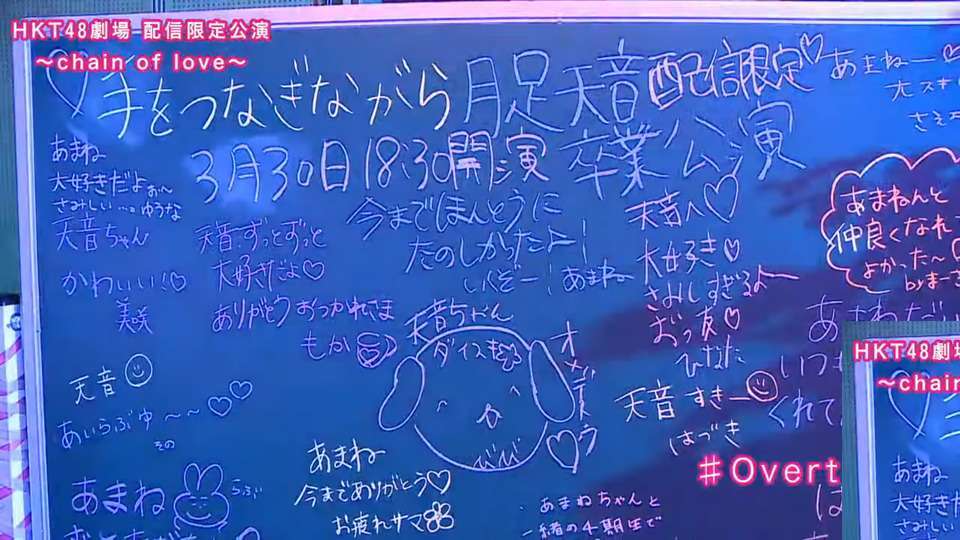 HKT48劇場 配信限定公演
～chain of love～
手をつなぎながら 月足天音 配信限定
3月30日 18:30開演 卒業公演
あまねー♡
大スキ
さえ
あまね
大好きだよぉぉ～
さみしい…。ゆうな
天音ちゃん
かわいい!♡
美咲
天音、ずっとずっと
大好きだよ♡
ありがとうおつかれさま
もか
今までほんとうに
たのしかったよー!
いくぞー!あまね
天音へ♡
大好き♡
さみしすぎるよー
おつ友♡
ひなた
あまねんと
仲良くなれ
よかった～
byまーさ
天音ちゃん
ダイスキ
オメデトウ
びび
天音
あいらぶゆ～～♡♡
その
天音 すきー
はづき
あまね
いつも
くれて
あまね
らぶ
あまね
今までありがとう♡
お疲れサマ
あまねちゃんと
一緒の4期生で
#Overt
HKT48劇場
～chain
あまね
大好き
さみしい
天音